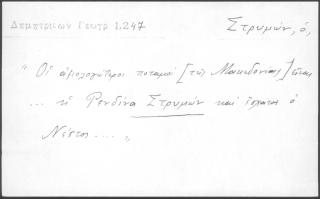 Δημητριέων Γεωγρ 1.247
Στρυμών, ὁ,
" Οἱ ἀξιολογώτεροι ποταμοί [τῆς Μακεδονίας] εἶναι
... ἡ Ρενδίνα Στρυμών καί ἔσχατος ὁ
Νέστος ... "